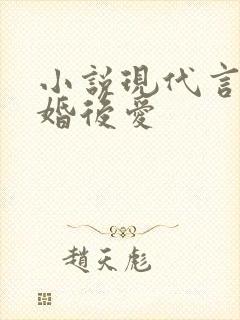 小說現代言
婚後愛
趙天彪